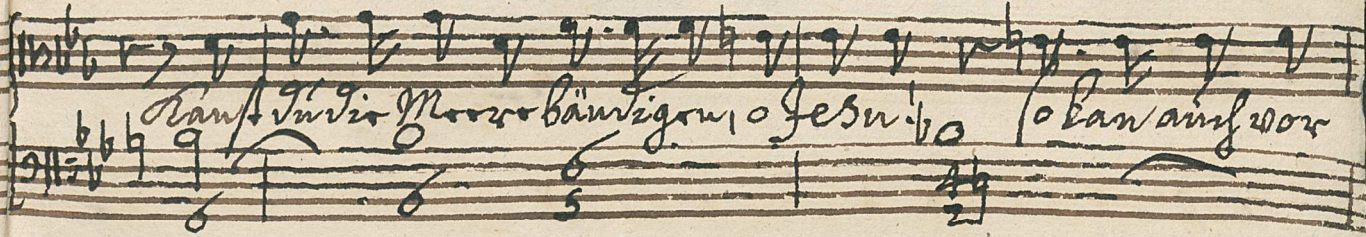 Kanst du die Meere bändigen, o Jesu! so kan auch vor
6 6 6
5 4
2